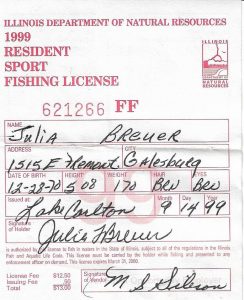 ILLINOIS DEPARTMENT OF NATURAL RESOURCES
1999
RESIDENT
SPORT
FISHING LICENSE
ILLINOIS
DEPARTMENT OF
NATURAL
RESOURCES
621266 FF
NAME
Julia Breuer
ADDRESS CITY
1515 E Fremont Galesburg
DATE OF BIRTH HEIGHT WEIGHT HAIR EYES
12-28-70 5 08 170 Brv Brv
Issued at
Lake Carlton 9 14 99
Signature
of Holder
Julie Breuer
is authorized to fish in waters in the State of Illinois, subject to all of the regulations in the Illinois
Fish and Aquatic Life Code. This license must be carried by the holder while fishing and presented to an
enforcement officer on demand. This license expires March 31, 2000.
License Fee $12.50
Issuing Fee .50
Total $13.00
Signature
of Vendor
M S Gibson